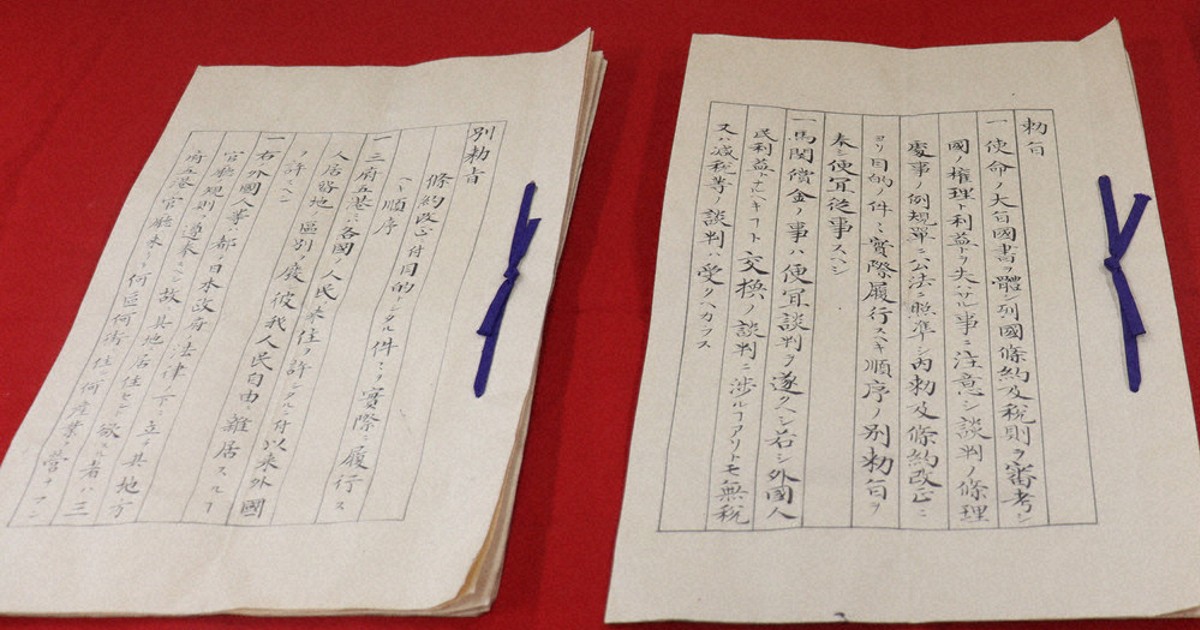 勅旨
一使命ノ大旨國書ヲ體シ列國條約及税則ヲ審考シ
國ノ權理ト利益トヲ失ハサル事ニ注意シ談判ノ條理
處事ノ例規單ニ公法ニ照準シ内勅及條約改正ニ
ヨリ目的件〻實際履行スヘキ順序ノ別勅旨ヲ
奉シ便宜從事スヘシ
一馬関償金ノ事ハ便宜談判ヲ遂クヘシ若シ外國人
民利益トナルヘキヿト交換ノ談判ニ渉ルヿアリトモ無税
又ハ減税等ノ談判ハ受クヘカラス
別勅旨
條約改正ニ付目的トシタル件〻ヲ實際ニ履行ス
ヘキ順序
一三府五港ニハ各國ノ人民ノ来住ヲ許シタルニ付以来外國
人居留地ノ區別ヲ廢シ彼我人民自由ニ雜居スルヿ
ヲ許スヘシ
一右ノ外國人事ハ都テ日本政府ノ法律ノ下ニ立チ其地方
官廳ノ規則ヲ遵奉スヘシ故ニ其地ニ居住セント欲スル者ハ三
府五港ノ官廳ニ来リテ何區何街ニ住シ何産業ヲ營ナマン